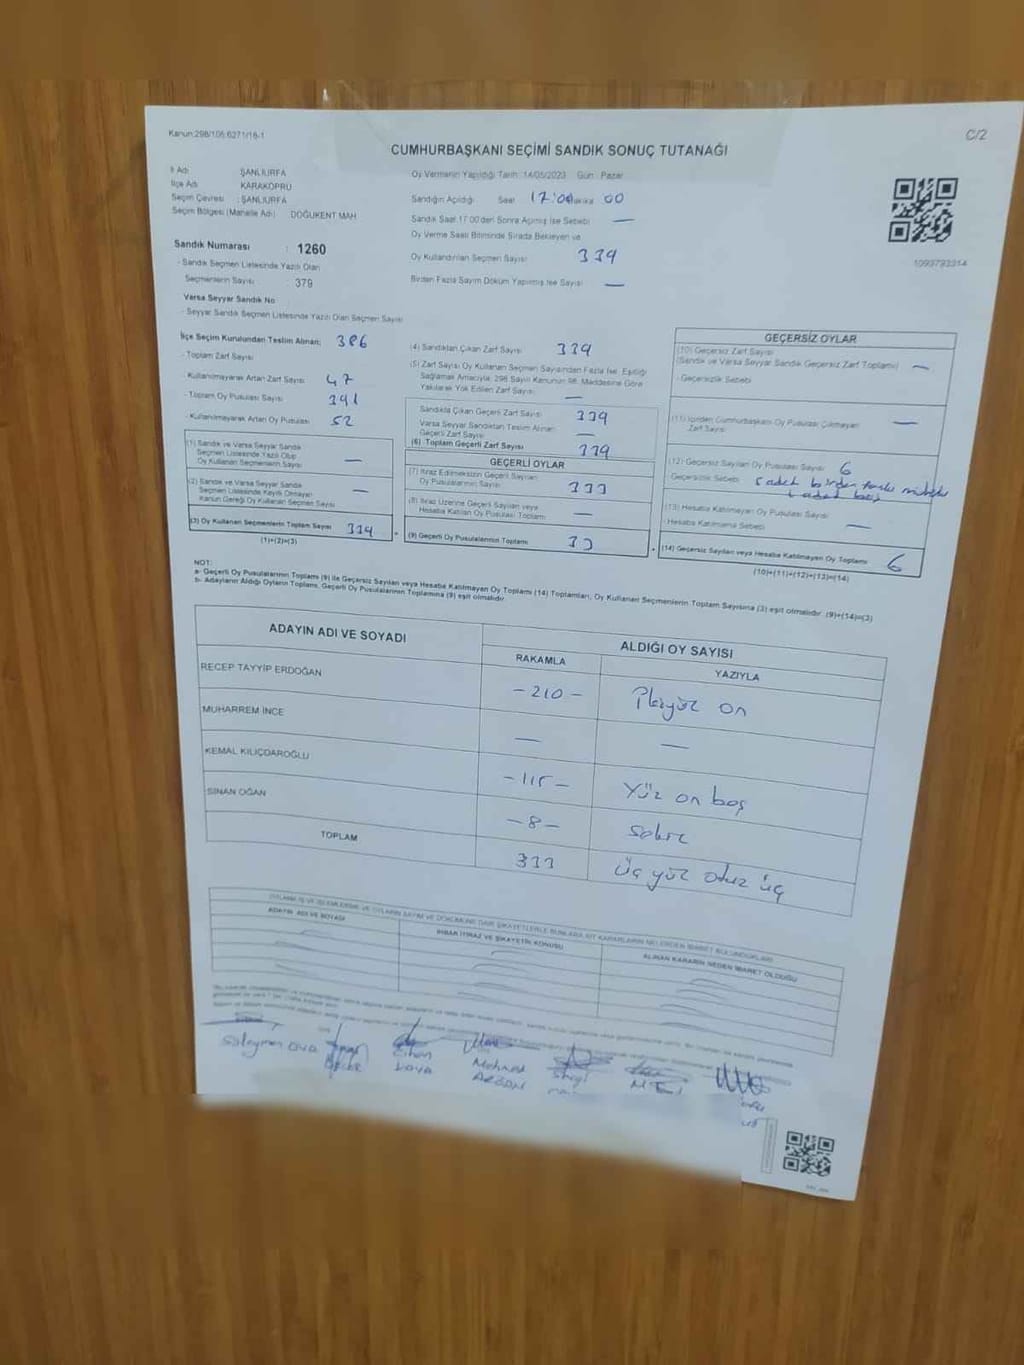 Kanun:298/105;6271/16-1
C/2
CUMHURBAŞKANI SEÇİMİ SANDIK SONUÇ TUTANAĞI
İl Adı ŞANLIURFA
İlçe Adı KARAKÖPRÜ
Seçim Çevresi : ŞANLIURFA
Seçim Bölgesi (Mahalle Adı) DOĞUKENT MAH
Sandık Numarası : 1260
- Sandık Seçmen Listesinde Yazılı Olan
Seçmenlerin Sayısı 379
Varsa Seyyar Sandık No
- Seyyar Sandık Seçmen Listesinde Yazılı Olan Seçmen Sayısı
Oy Vermenin Yapıldığı Tarih :14/05/2023 Gün : Pazar
Sandığın Açıldığı Saat 17:00 Dakika 00
Sandık Saat 17:00'den Sonra Açılmış İse Sebebi —
Oy Verme Saati Bitiminde Sırada Bekleyen ve
Oy Kullandırılan Seçmen Sayısı 339
Birden Fazla Sayım Döküm Yapılmış İse Sayısı —
1093793314
İlçe Seçim Kurulundan Teslim Alınan; 386
- Toplam Zarf Sayısı
- Kullanılmayarak Artan Zarf Sayısı 47
- Toplam Oy Pusulası Sayısı 391
- Kullanılmayarak Artan Oy Pusulası 52
(1) Sandık ve Varsa Seyyar Sandık
Seçmen Listesinde Yazılı Olup
Oy Kullanan Seçmenlerin Sayısı —
(2) Sandık ve Varsa Seyyar Sandık
Seçmen Listesinde Kayıtlı Olmayan
Kanun Gereği Oy Kullanan Seçmen Sayısı —
(3) Oy Kullanan Seçmenlerin Toplam Sayısı 339
(1)+(2)=(3)
(4) Sandıktan Çıkan Zarf Sayısı 339
(5) Zarf Sayısı Oy Kullanan Seçmen Sayısından Fazla İse, Eşitliği
Sağlamak Amacıyla; 298 Sayılı Kanunun 98. Maddesine Göre
Yakılarak Yok Edilen Zarf Sayısı —
Sandıkta Çıkan Geçerli Zarf Sayısı 339
Varsa Seyyar Sandıktan Teslim Alınan
Geçerli Zarf Sayısı —
(6) Toplam Geçerli Zarf Sayısı 339
GEÇERLİ OYLAR
(7) İtiraz Edilmeksizin Geçerli Sayılan
Oy Pusulalarının Sayısı 333
(8) İtiraz Üzerine Geçerli Sayılan veya
Hesaba Katılan Oy Pusulası Toplamı —
(9) Geçerli Oy Pusulalarının Toplamı
GEÇERSİZ OYLAR
(10) Geçersiz Zarf Sayısı
(Sandık ve Varsa Seyyar Sandık Geçersiz Zarf Toplamı) —
- Geçersizlik Sebebi
(11) İçinden Cumhurbaşkanı Oy Pusulası Çıkmayan
Zarf Sayısı —
(12) Geçersiz Sayılan Oy Pusulası Sayısı 6
Geçersizlik Sebebi 5 adet birden fazla mühür
1 adet boş
(13) Hesaba Katılmayan Oy Pusulası Sayısı
Hesaba Katılmama Sebebi —
(14) Geçersiz Sayılan veya Hesaba Katılmayan Oy Toplamı 6
(10)+(11)+(12)+(13)=(14)
NOT:
a- Geçerli Oy Pusulalarının Toplamı (9) ile Geçersiz Sayılan veya Hesaba Katılmayan Oy Toplamı (14) Toplamları, Oy Kullanan Seçmenlerin Toplam Sayısına (3) eşit olmalıdır. (9)+(14)=(3)
b- Adayların Aldığı Oyların Toplamı, Geçerli Oy Pusulalarının Toplamına (9) eşit olmalıdır.
ADAYIN ADI VE SOYADI
ALDIĞI OY SAYISI
RAKAMLA YAZIYLA
RECEP TAYYİP ERDOĞAN -210- İkiyüz on
MUHARREM İNCE — —
KEMAL KILIÇDAROĞLU -115- Yüz on beş
SİNAN OĞAN -8- sekiz
TOPLAM 333 Üç yüz otuz üç
ADAYIN ADI VE SOYADI
İHBAR İTİRAZ VE ŞİKAYETİN KONUSU
ALINAN KARARIN NEDEN İBARET OLDUĞU
Süleyman
Cihan
KAYA
Mehmet